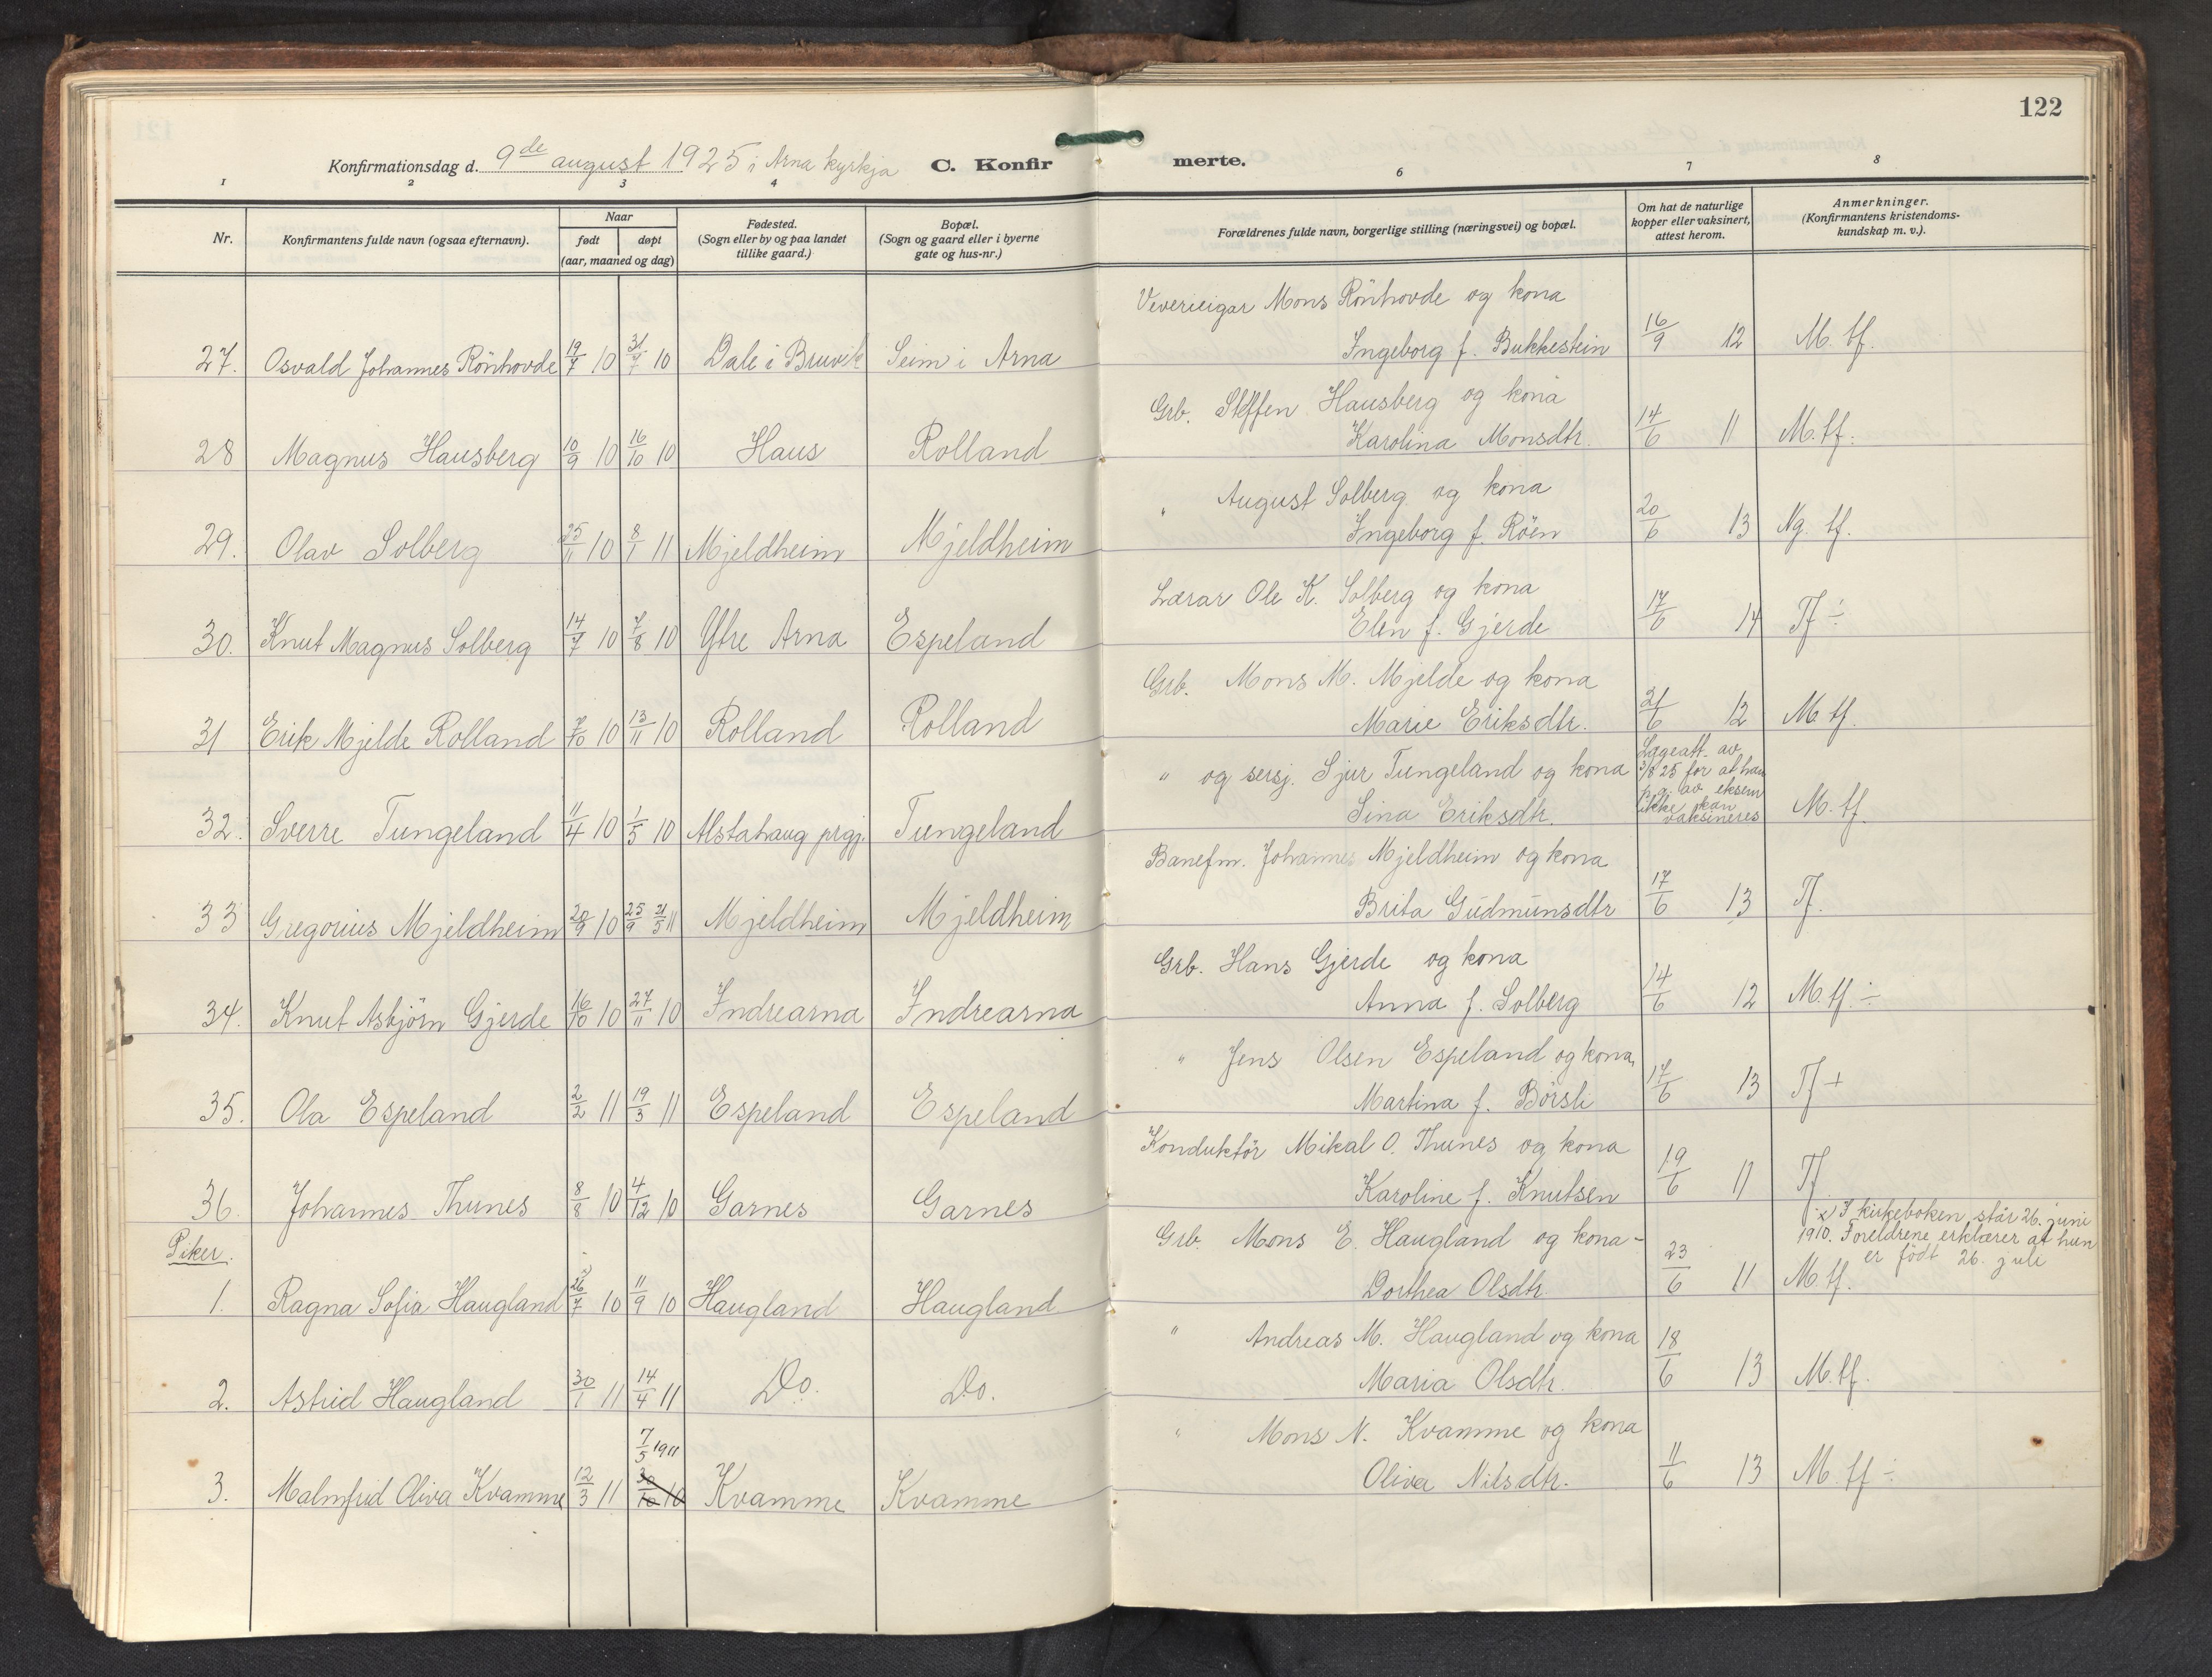 122
Konfirmationsdag d. 9de august 1925 i Arna kyrkja C. Konfirmerte.
1 2 3 4 6 7 8
Nr. Konfirmantens fulde navn (ogsaa efternavn). Naar født døpt (aar, maaned og dag) Fødested. (Sogn eller by og paa landet tillike gaard.) Bopæl. (Sogn og gaard eller i byerne gate og hus-nr.) Forældrenes fulde navn, borgerlige stilling (næringsvei) og bopæl. Om hat de naturlige kopper eller vaksinert, attest herom. Anmerkninger. (Konfirmantens kristendoms-kundskap m. v.).
Veverieigar Mons Rönhovde og kona
27. Osvald Johannes Rönhovde 19/7 10 31/7 10 Dale i Bruvik Seim i Arna Ingeborg f. Bukkestein 16/9 12 M. tf.
Grb. Steffen Hausberg og kona
28 Magnus Hausberg 10/9 10 16/10 10 Haus Rolland Karolina Monsdtr. 14/6 11 M. tf.
" August Solberg og kona
29. Olav Solberg 25/11 10 8/1 11 Mjeldheim Mjeldheim Ingeborg f. Röen 20/6 13 Ng. tf.
Lærar Ole K. Solberg og kona
30. Knut Magnus Solberg 14/7 10 7/8 10 Ytre Arna Espeland Elen f. Gjerde 17/6 14 Tf ÷
Grb. Mons M. Mjelde og kona
31 Erik Mjelde Rolland 7/10 10 13/11 10 Rolland Rolland Marie Eriksdtr. 21/6 12 M. tf.
" og sersj. Sjur Tungeland og kona
32. Sverre Tungeland 11/4 10 1/5 10 Alstahaug prgj. Tungeland Sina Eriksdtr. Lægeatt. av 3/8 25 for at han p. g. av eksem ikke kan vaksineres M. tf.
Banefm. Johannes Mjeldheim og kona
33 Gregorius Mjeldheim 20/9 10 25/9 21/5 11 Mjeldheim Mjeldheim Brita Gudmunsdtr 17/6 13 Tf.
Grb. Hans Gjerde og kona
34. Knut Asbjörn Gjerde 16/10 10 27/11 10 Indrearna Indrearna Anna f. Solberg 14/6 12 M. tf. ÷
" Jens Olsen Espeland og kona
35. Ola Espeland 2/2 11 19/3 11 Espeland Espeland Martina f. Börsli 17/6 13 Tf +
Konduktör Mikal O. Thunes og kona
36. Johannes Thunes 8/8 10 4/12 10 Garnes Garnes Karoline f. Knutsen 19/6 11 Tf
Piker.
Grb. Mons E. Haugland og kona
x) I kirkeboken står 26. juni
1910. Foreldrene erklærer at hun
er födt 26. juli
1. Ragna Sofia Haugland 26/7 x) 10 11/9 10 Haugland Haugland Dorthea Olsdtr. 23/6 11 M. tf.
" Andreas M. Haugland og kona
2. Astrid Haugland 30/1 11 14/4 11 Do. Do. Maria Olsdtr. 18/6 13 M. tf.
" Mons N. Kvamme og kona
7/5 1911
3. Malmfrid Oliva Kvamme 12/3 11 30/10 10 Kvamme Kvamme Oliva Nilsdtr. 11/6 13 M. tf ÷